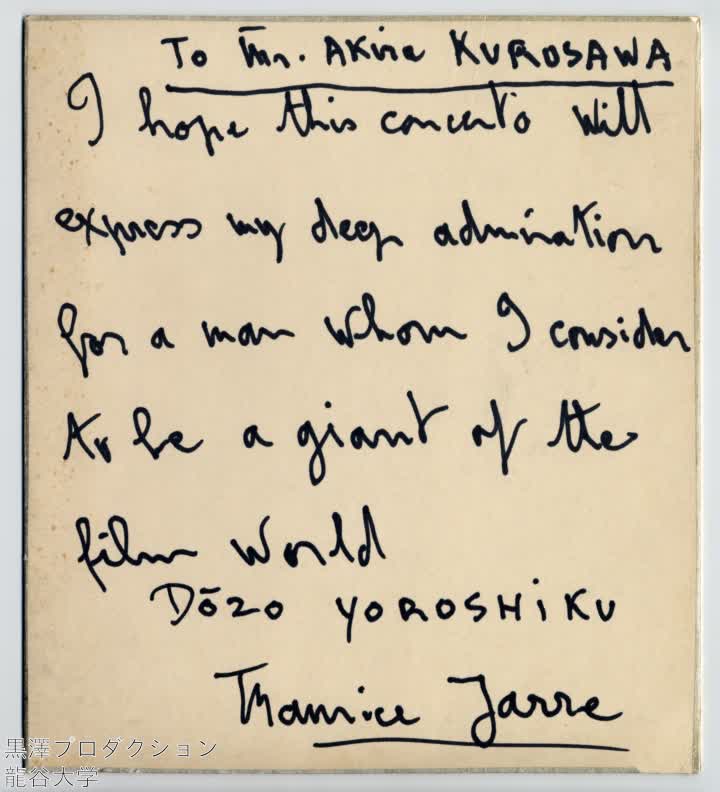 To Mr. Akira KUROSAWA
I hope this concerto will
express my deep admiration
for a man whom I consider
to be a giant of the
film world
Dōzo YOROSHIKU
Maurice Jarre
黒澤プロダクション
龍谷大学